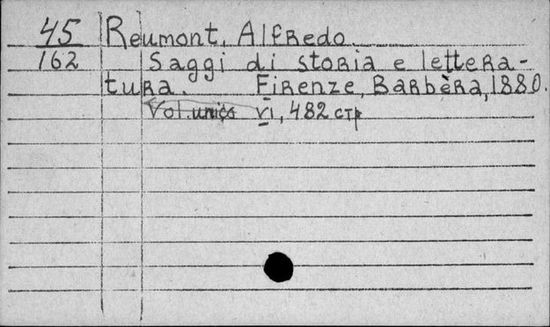 45 Reumont, Alfredo.
162 Saggi di storia e lettera-
tura. Firenze, Barbèra, 1880.
Vol. unico vi, 482 стр